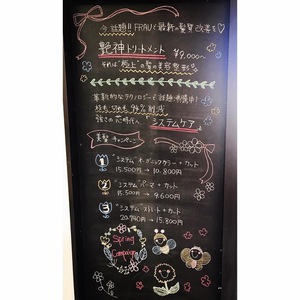 今話題!! FRAUで最新の髪質改善を♡
艶神トリートメント ¥9,000〜
それは"極上"の髪の美容整形
革新的なテクノロジーで話題沸騰中!
強さの芯時代へ 『システムケア』
美髪キャンペーン
1 "システム" オーガニックカラー + カット
15.500円 → 10.800円
2 "システム" パーマ + カット
15.500円 → 9.600円
3 "システム" ストレート + カット
20.740円 → 15.800円
Spring
Campaign